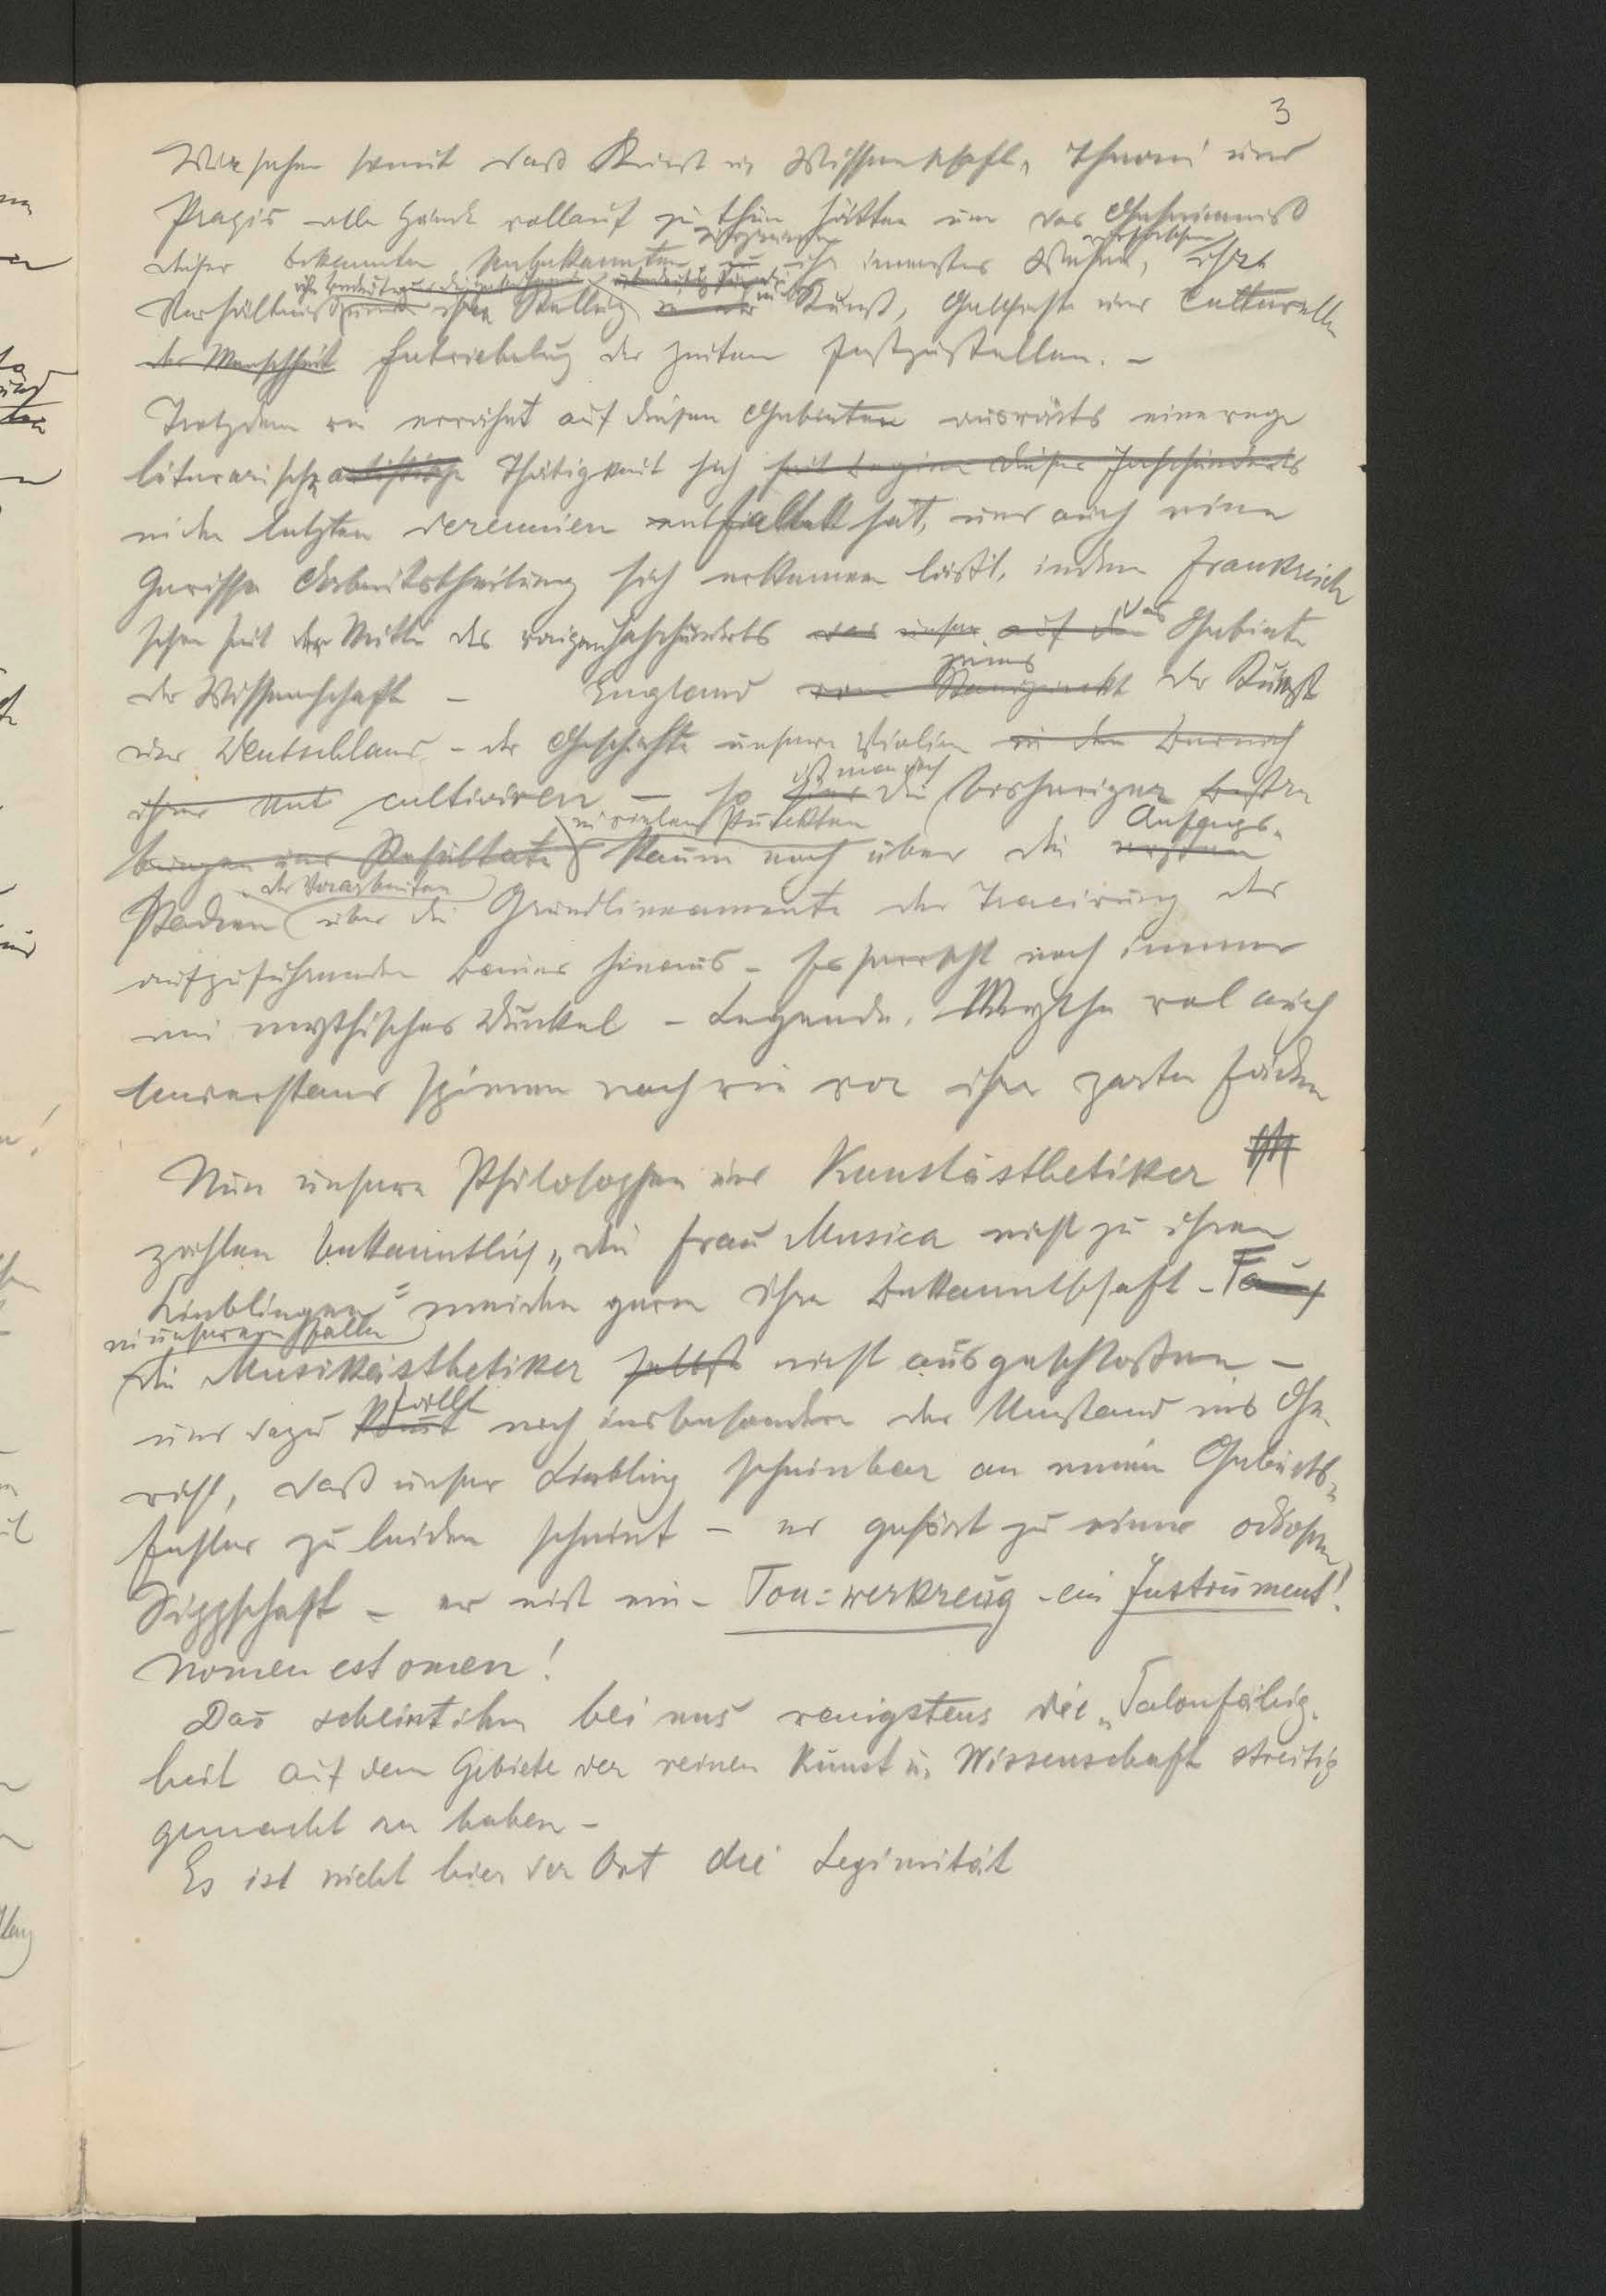 3
Wir sehen somit daß Kunst u. Wissenschaft, Theorie und
Praxis alle Hände vollauf zu thun hätten um das Geheimniß
dieser bekannten Unbekannten zu ihr innerstes Wesen, ihre
Verhältniß und ihre Stellung in der Kunst, Geschichte und culturellen
der Menschheit Entwickelung der Zeiten festzustellen. –
Trotzdem wie erwähnt auf diesen Gebieten auswärts eine rege
literarische artistische Thätigkeit sich seit Beginn dieses Jahrhunderts
in den letzten Decennien entfaltet hat, und auch eine
gewisse Arbeitstheilung sich erkennen läßt, indem Frankreich
schon seit der Mitte des vorigen Jahrhunderts das unser auf dem das Gebiete
der Wissenschaft – England vom Standpunkt der Kunst
und Deutschland – der Geschichte unserer Violine
cultiviren – so ist man doch die bisherigen
Resultate in vielen Punkten kaum noch über die ersten Anfangs-
Stadien der Vorarbeiten über die Grundlineamente der Tracirung des
aufzuführenden Baues hinaus – Es herrscht noch immer
ein mythisches Dunkel – Legende, Mythe wol auch
Unverstand spinnen nach wie vor ihre zarten Fäden
Nun unsere Philosophen und Kunstästhetiker
zählen bekanntlich „die Frau Musica nicht zu ihren
Lieblingen" meiden gern ihre Bekanntschaft –
in unserem Falle
die Musikästhetiker selbst nicht ausgeschloßen –
und dazu fällt noch insbesondere der Umstand ins Ge-
wicht, daß unser Liebling scheinbar an einem Geburts-
fehler zu leiden scheint – er gehört zu einer odiosen
Sippschaft – er ist ein – Ton-werkzeug – ein Instrument!
Nomen est omen!
Das scheint ihm bei uns wenigstens die „Salonfähig-
keit auf dem Gebiete der reinen Kunst u. Wissenschaft streitig
gemacht zu haben –
Es ist nicht hier der Ort die Legimität